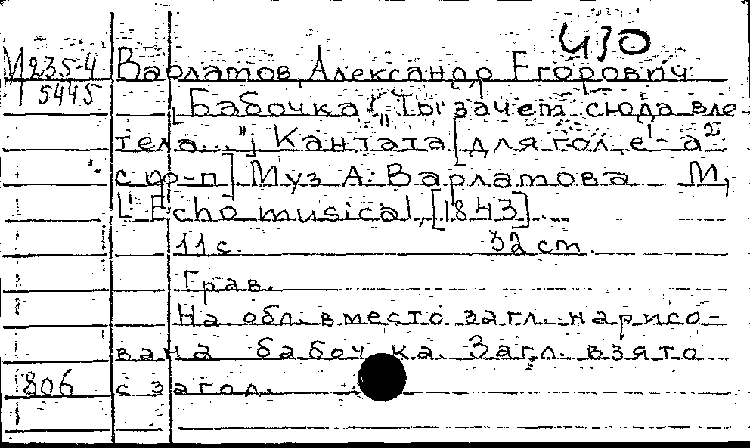 430
М 235-4 Варламов, Александр Егорович
5445 [Бабочка ("Ты зачем сюда вле-
тела..."] Кантата [для гол. e¹- a²
с ф-п]. Муз А. Варламова М,
L'Echo musical, [1843].
11 с. 32 cm.
Грав.
На обл. вместо загл. нарисо-
вана бабочка. Загл. взято
806 с загол.